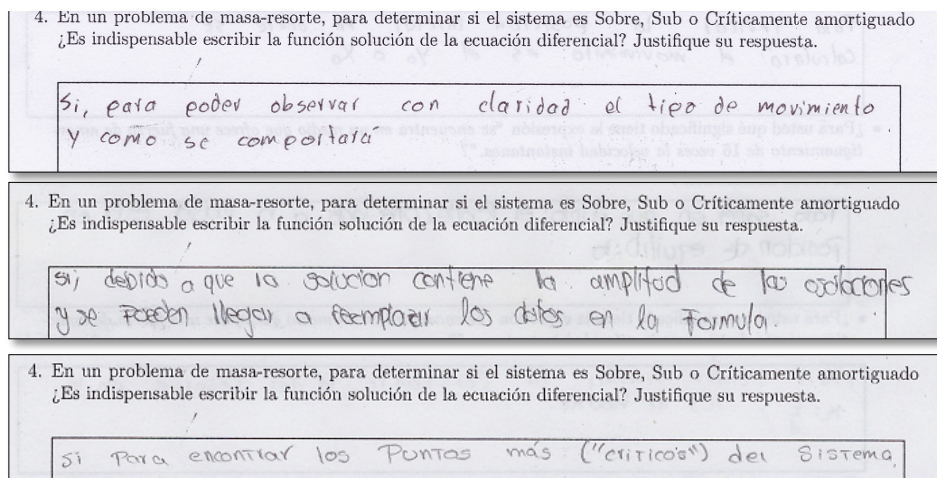 4. En un problema de masa-resorte, para determinar si el sistema es Sobre, Sub o Críticamente amortiguado
¿Es indispensable escribir la función solución de la ecuación diferencial? Justifique su respuesta.
Si, para poder observar con claridad el tipo de movimiento
y como se comportará
4. En un problema de masa-resorte, para determinar si el sistema es Sobre, Sub o Críticamente amortiguado
¿Es indispensable escribir la función solución de la ecuación diferencial? Justifique su respuesta.
si, debido a que la solucion contiene la amplitud de las oscilaciones
y se pueden llegar a reemplazar los datos en la formula.
4. En un problema de masa-resorte, para determinar si el sistema es Sobre, Sub o Críticamente amortiguado
¿Es indispensable escribir la función solución de la ecuación diferencial? Justifique su respuesta.
Si Para encontrar los Puntos más ("criticos") del Sistema